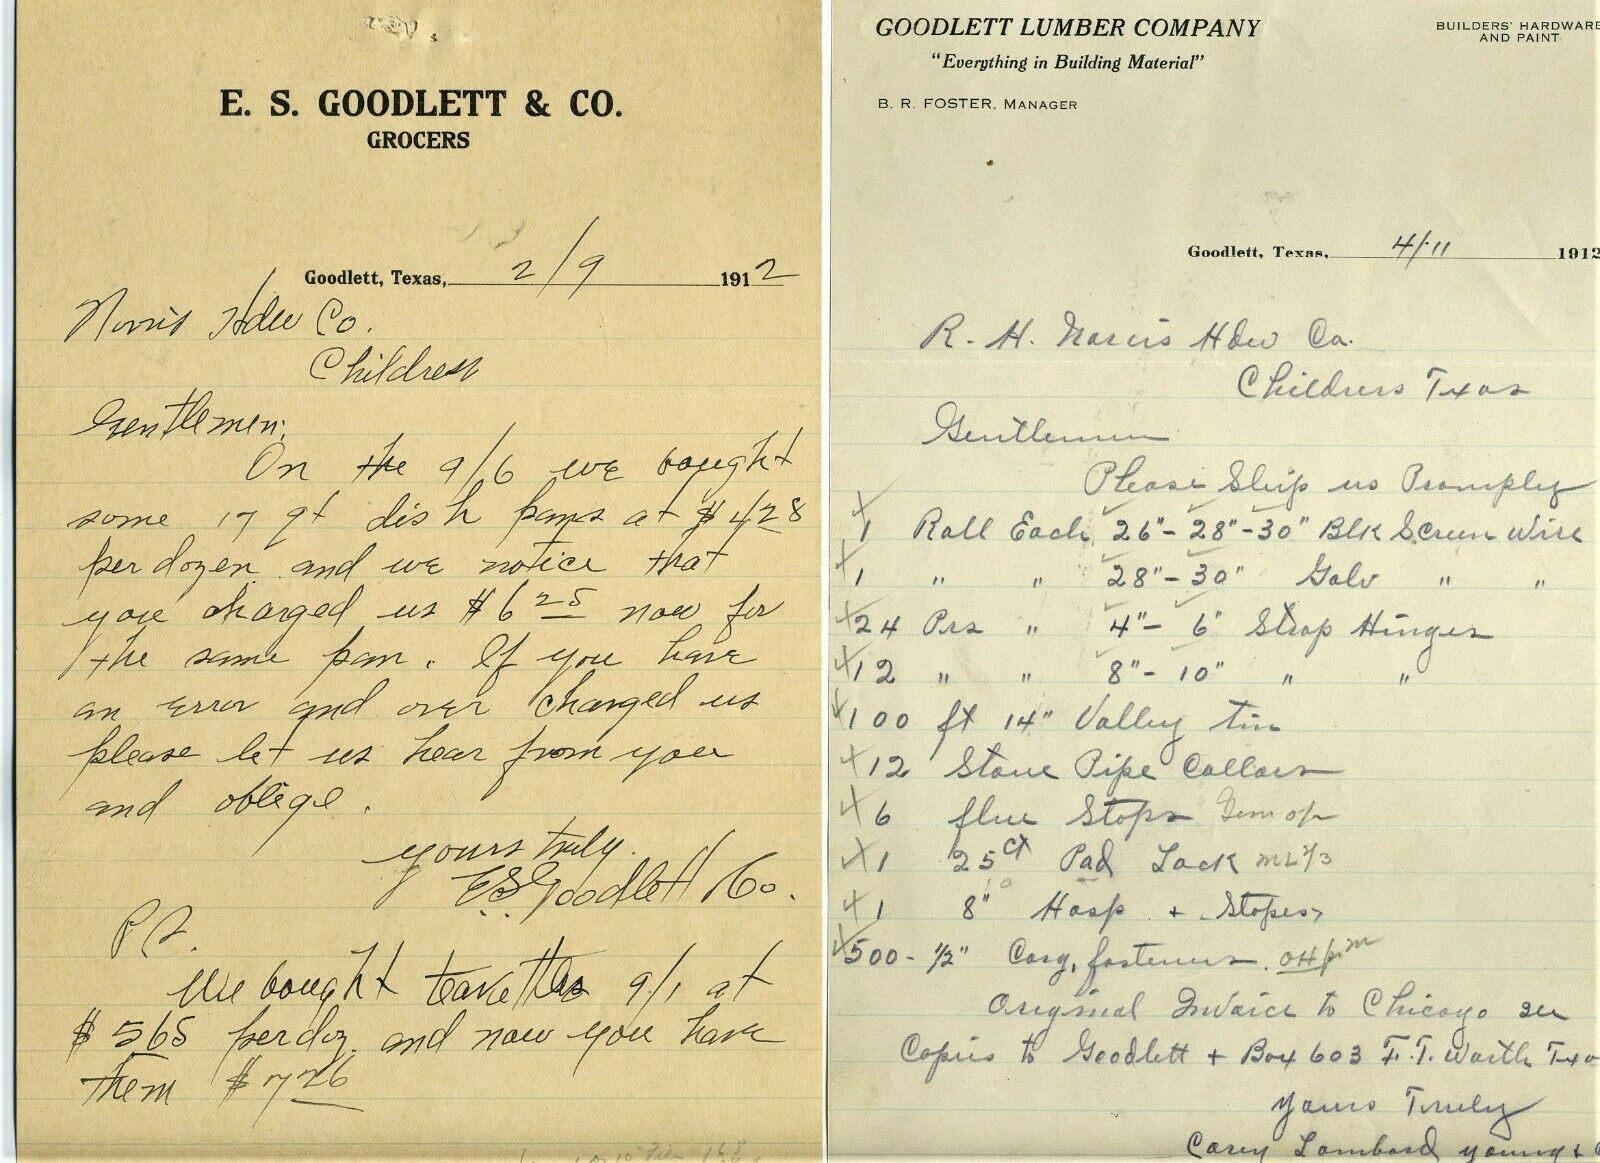 E. S. GOODLETT & CO.
GROCERS
Goodlett, Texas, 2/9 1912
Norris Hdw Co.
Childress
Gentlemen:
On the 9/6 we bought
some 17 qt dish pans at $428
per dozen and we notice that
you charged us $6 25 now for
the same pan. If you have
an error and over charged us
please let us hear from you
and oblige.
yours truly.
E.S. Goodlett & Co.
P.S.
We bought 9/1 at
$565 per doz. and now you have
them $726
GOODLETT LUMBER COMPANY
"Everything in Building Material"
BUILDERS' HARDWARE
AND PAINT
B. R. FOSTER, MANAGER
Goodlett, Texas, 4/11 1912
R. H. Norris Hdw Co.
Childress Texas
Gentlemen
Please Ship us Promply
1 Roll Each 26"-28"-30" Blk Screen Wire
1 " " 28"-30" Galv " "
24 Prs " 4"- 6" Strap Hinges
12 " " 8"- 10" " "
100 ft 14" Valley tin
12 Stove Pipe Collars
6 flue Stops
1 25 ct Pad Lock
1 8" Hasp + Staples
500 - 1/2" Corg, fasteners.
Original Invoice to Chicago
Copies to Goodlett + Box 603 F.T. Worth
Yours Truly
Carey Lombard Young +